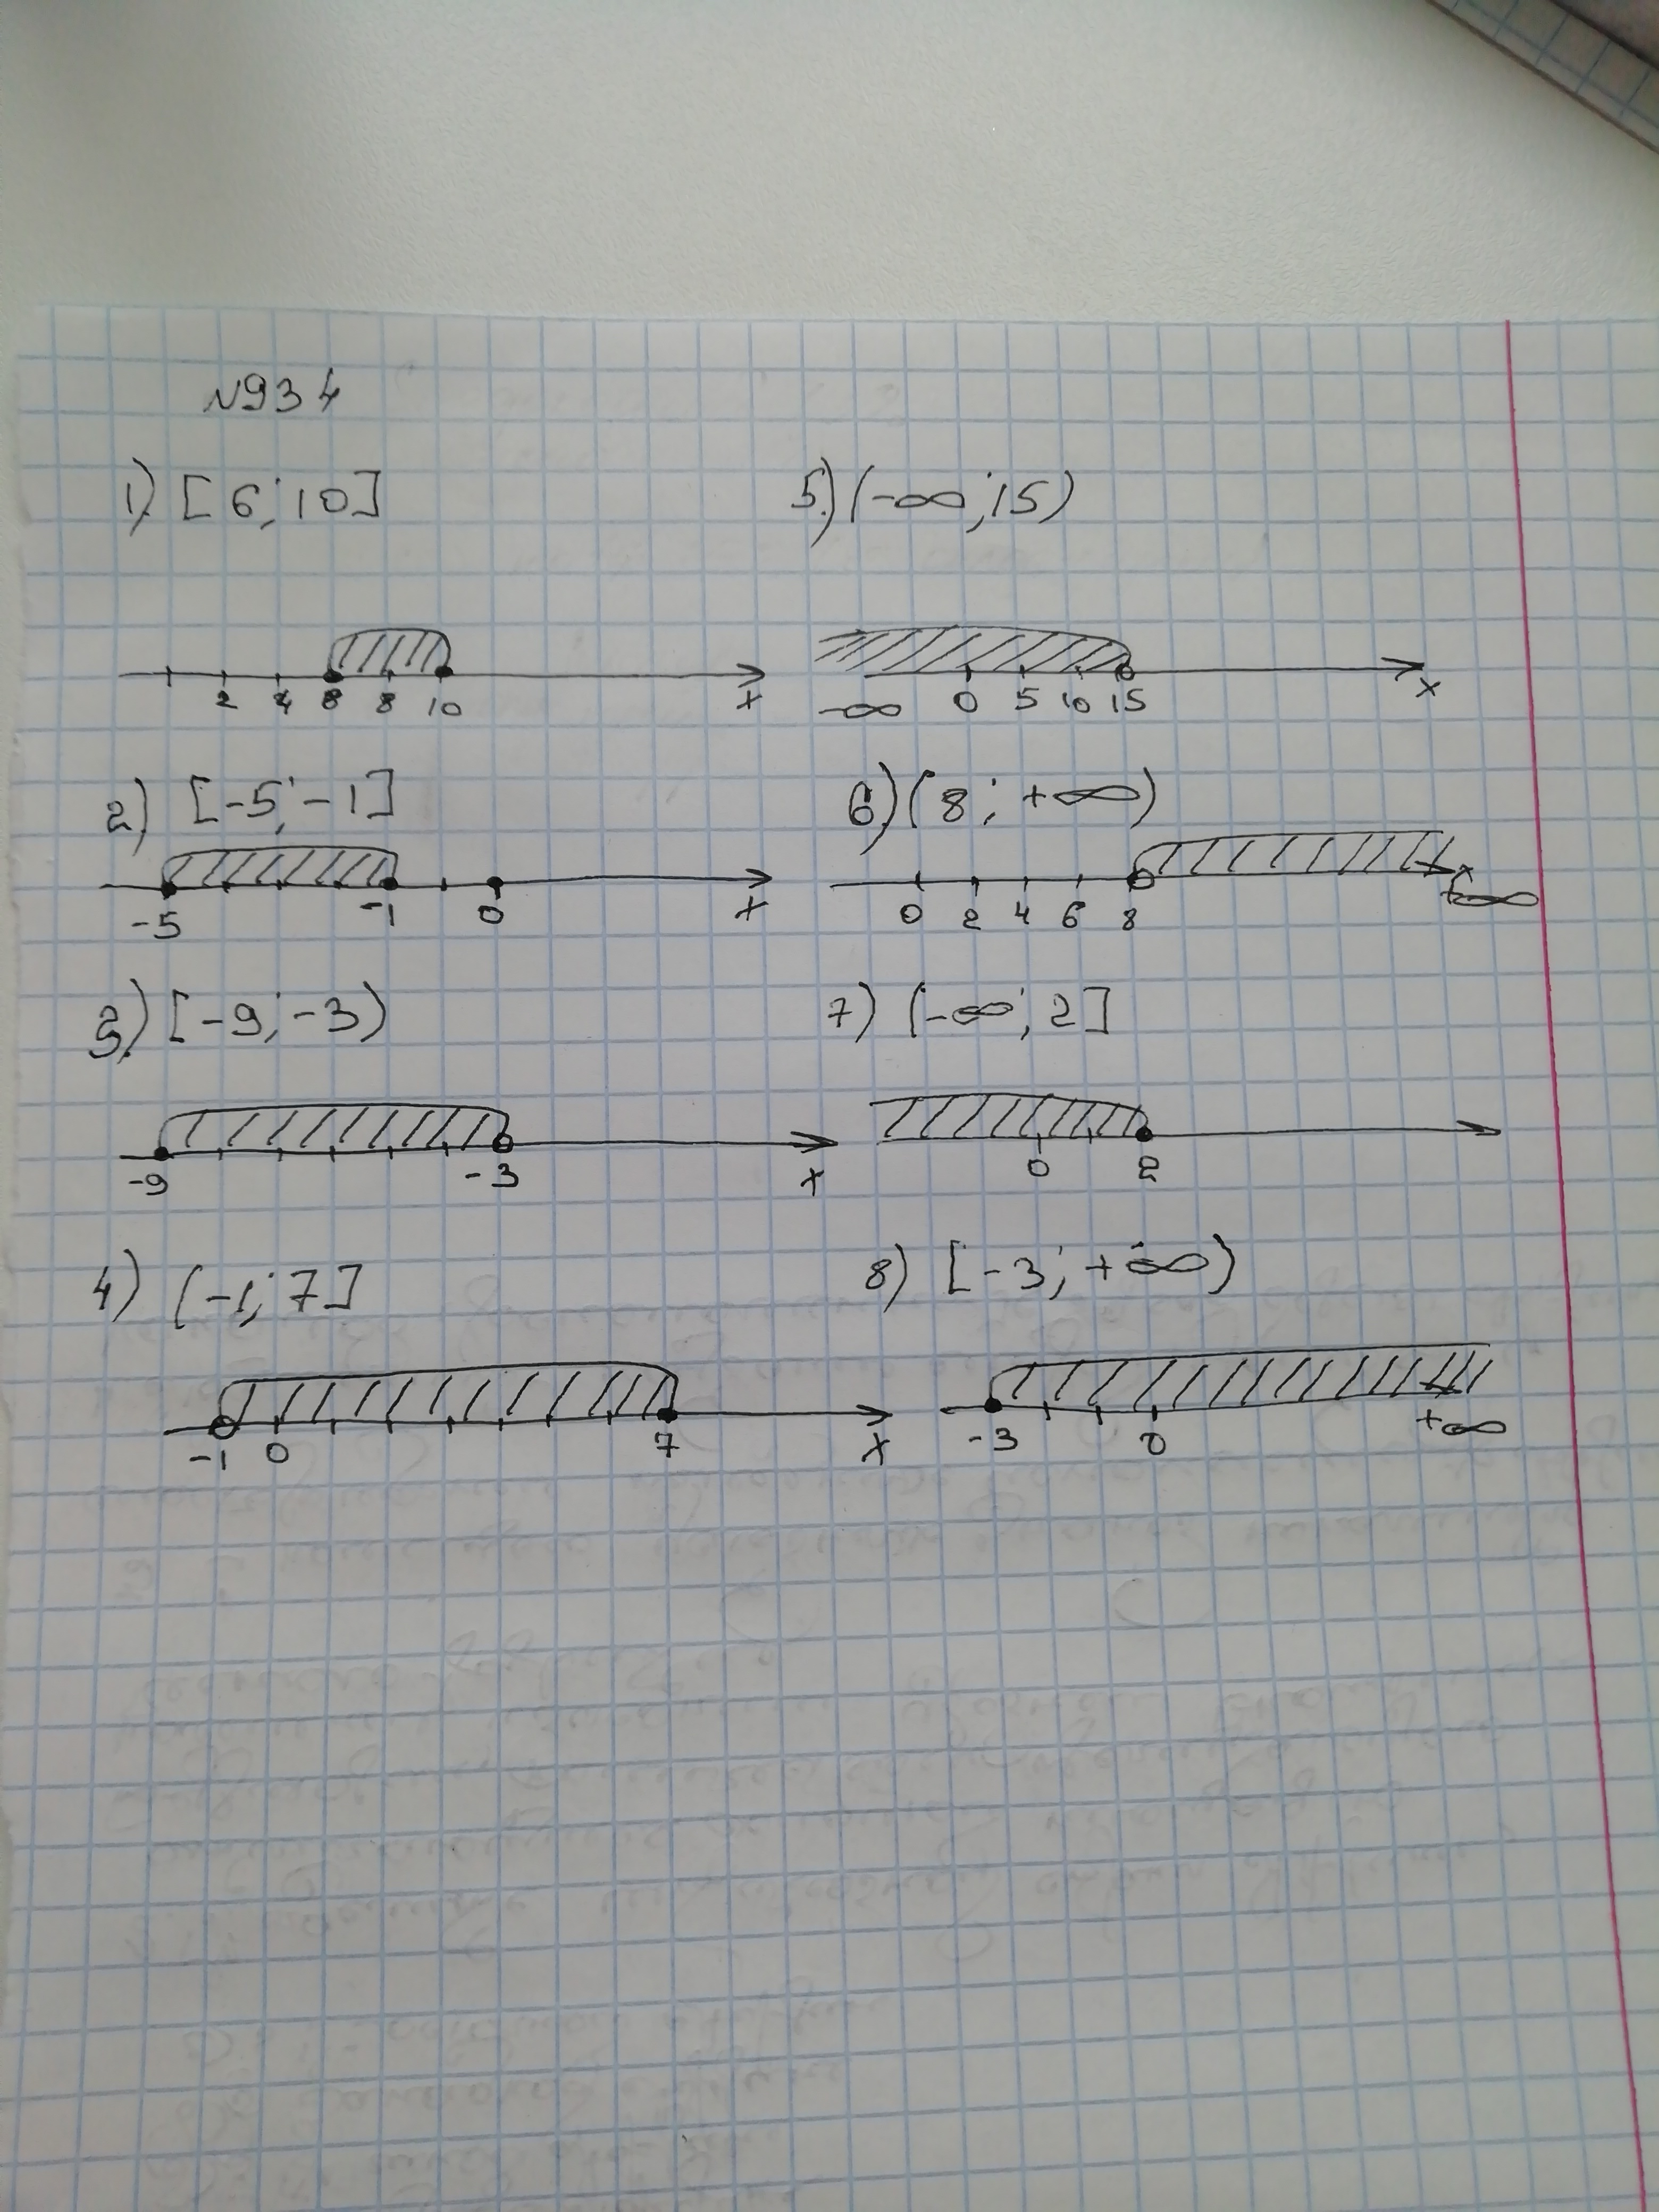 N934
1) [6; 10]
2 4 6 8 10 x
2) [-5; -1]
-5 -1 0 x
3) [-9; -3)
-9 -3 x
4) (-1; 7]
-1 0 7 x
5) (-∞; 15)
-∞ 0 5 10 15 x
6) (8; +∞)
0 2 4 6 8 x +∞
7) (-∞; 2]
0 2
8) [-3; +∞)
-3 0 +∞